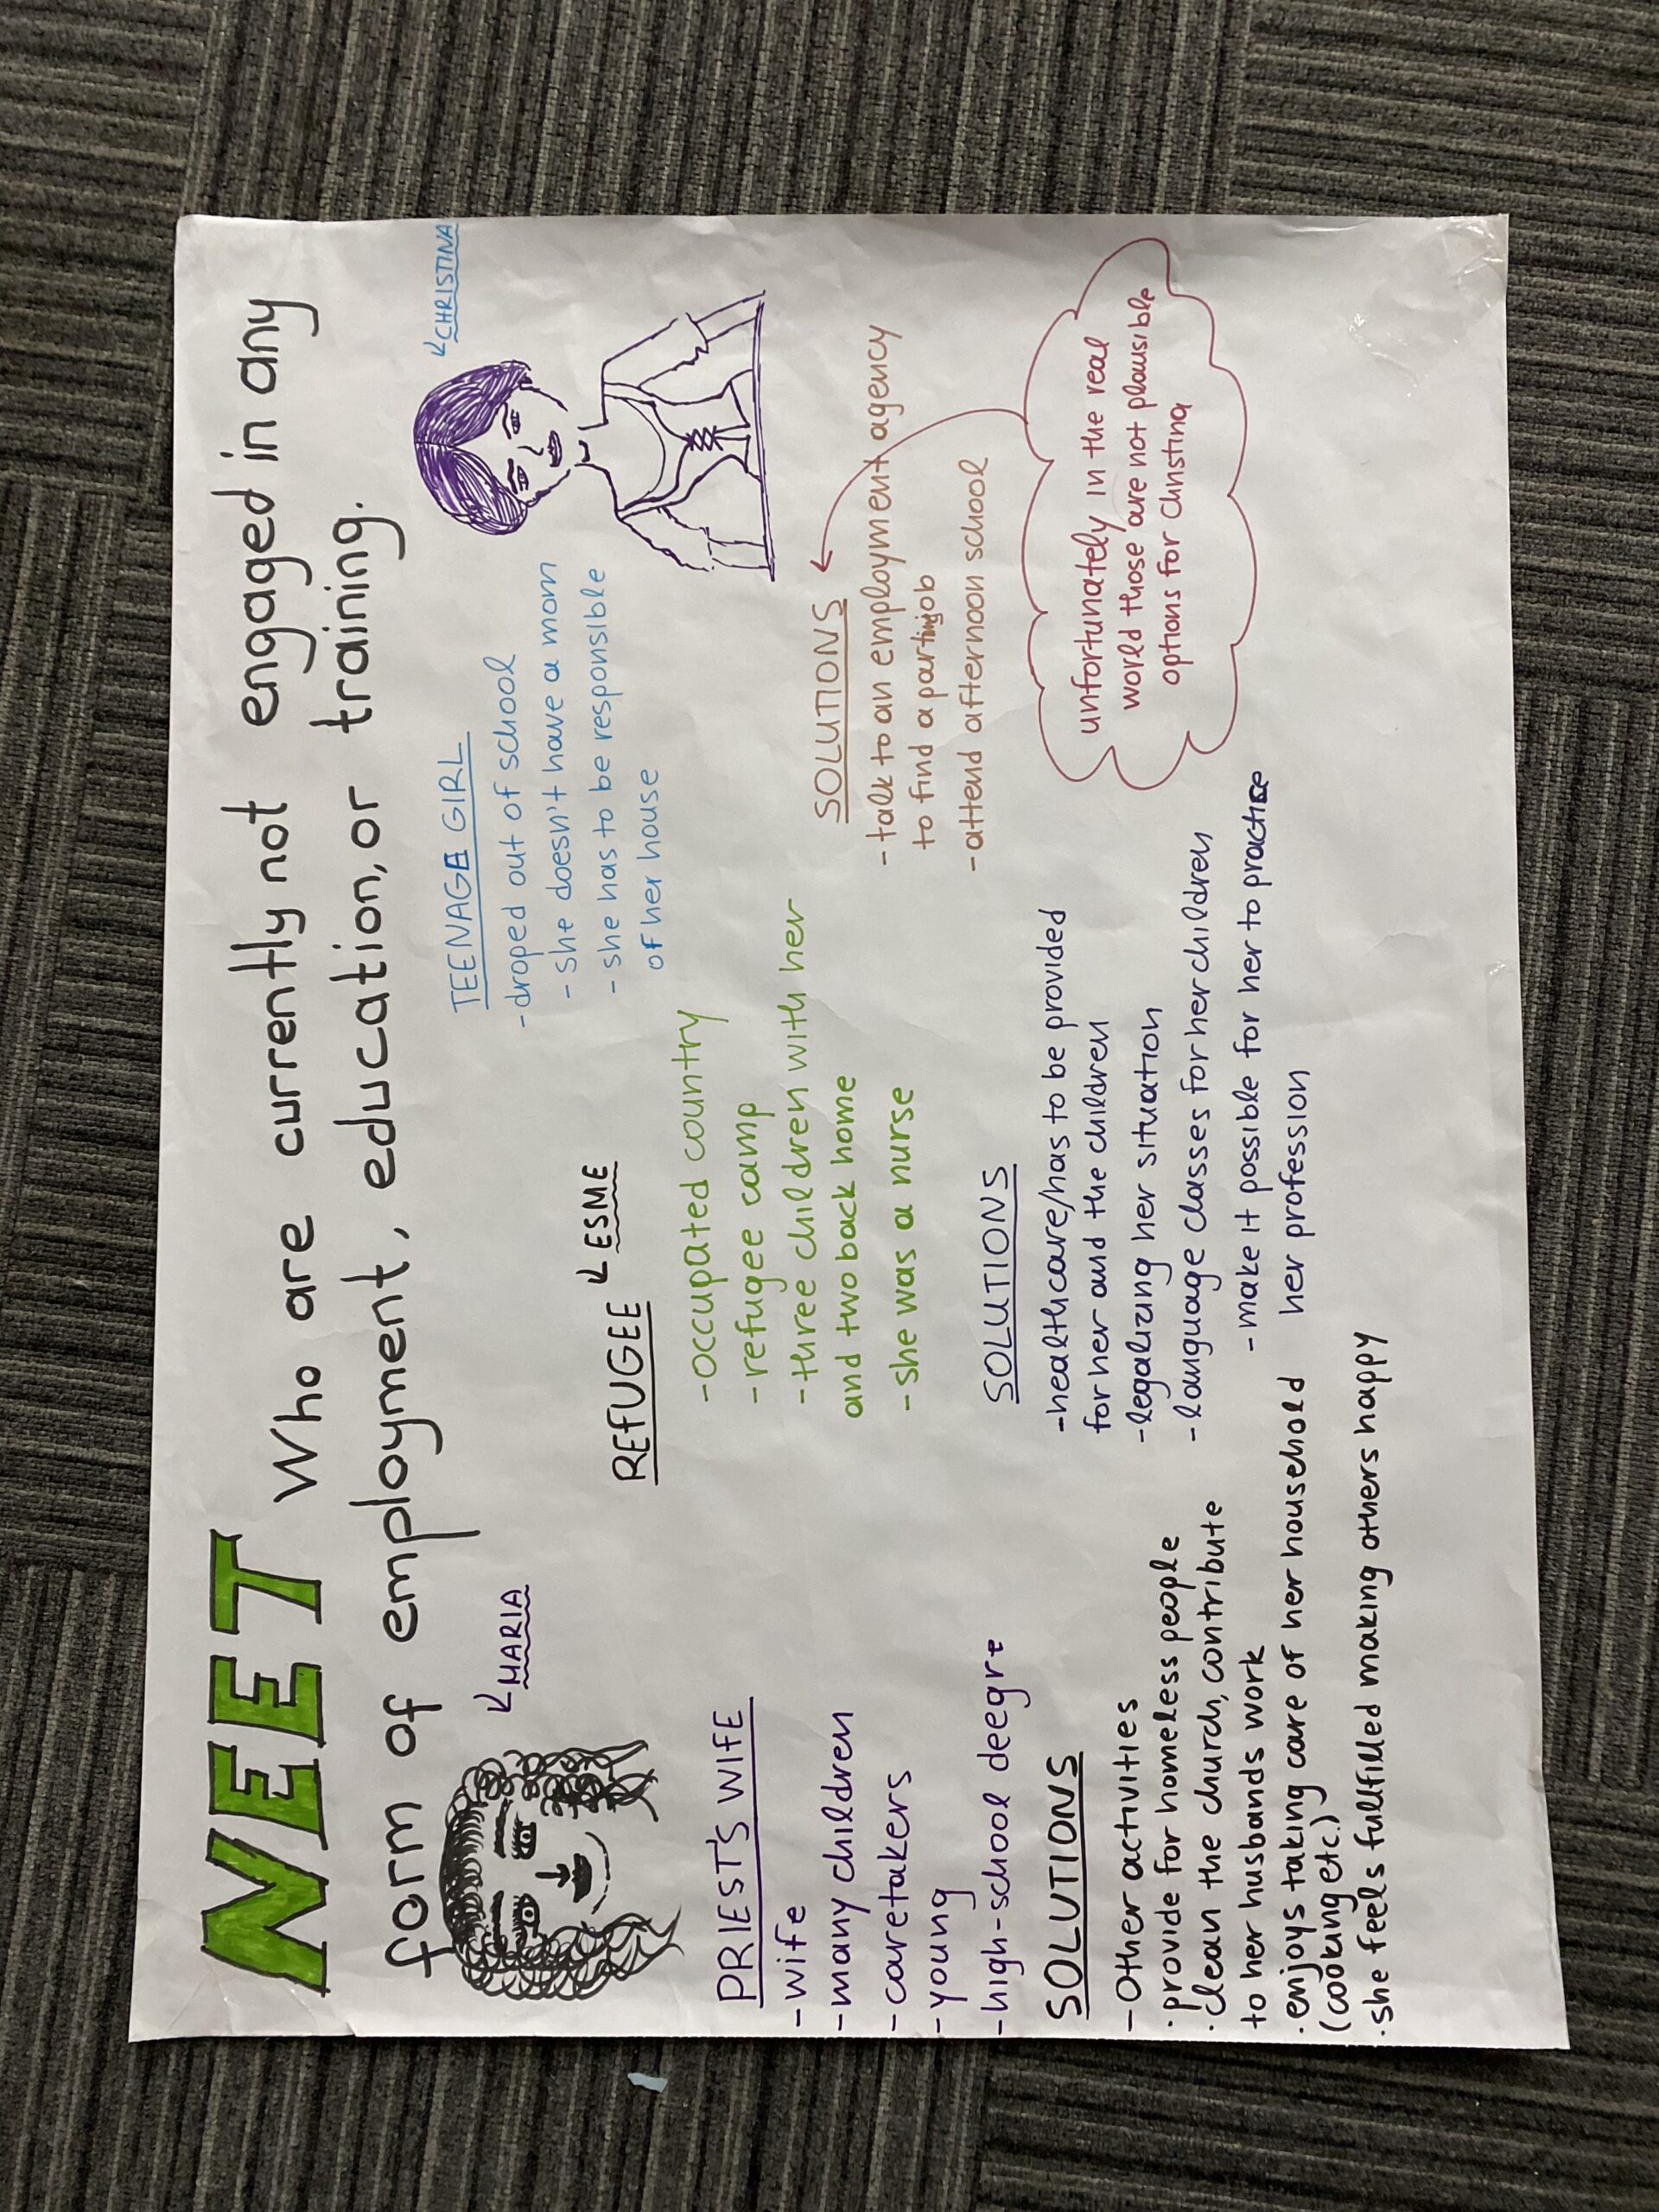 NEET Who are currently not engaged in any
form of employment, education, or training.
↙MARIA
PRIEST'S WIFE
-wife
-many children
-caretakers
-young
-high-school deegre
SOLUTIONS
-Other activities
·provide for homeless people
·clean the church, contribute
to her husbands work
·enjoys taking care of her household
(cooking etc.)
·she feels fullfilled making others happy
REFUGEE ↙ESME
-occupated country
-refugee camp
-three children with her
and two back home
-she was a nurse
SOLUTIONS
-healthcare/has to be provided
for her and the children
-legalizing her situation
-language classes for her children
-make it possible for her to practise
her profession
↙CHRISTINA
TEENAGE GIRL
-droped out of school
-she doesn't have a mom
-she has to be responsible
of her house
SOLUTIONS
-talk to an employment agency
to find a job
-attend afternoon school
unfortunately in the real
world those are not plausible
options for christina